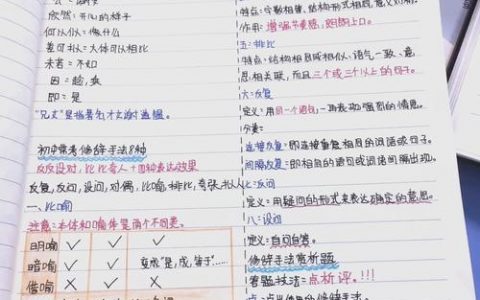 欣然:开心的样子
何以似:像什么
差可拟:大体可以相比
未若:不如
因:趁,乘
即:是
初中常考修辞手法8种
反复,反问,设问,对偶,比喻,排比,夸张,拟人
一、比喻
注意:本体和喻体是两个不同类。
明喻 ✓ ✓ ✓
暗喻 ✓ ✓ 变成"是,成,等于"……
借喻 × ✓ ×
特点:字数相等,结构形式相同,意义对称。
作用:增强节奏感,朗朗上口。
五、排比
特点:结构相同或相似,语气一致,意
思相关联,而且三个或三个以上的句子。
六、反复
定义:用同一个语句,一再表动强烈的情思。
分类:
连接反复:即连接重复相同的词语或句子。
间隔反复:即相同的语句或词语间隔出现。
七:反问
定义:用疑问的形式来表达确定的意思。
八:设问
定义:自问自答。
修辞手法赏析题
答题技法:点析评。!!!